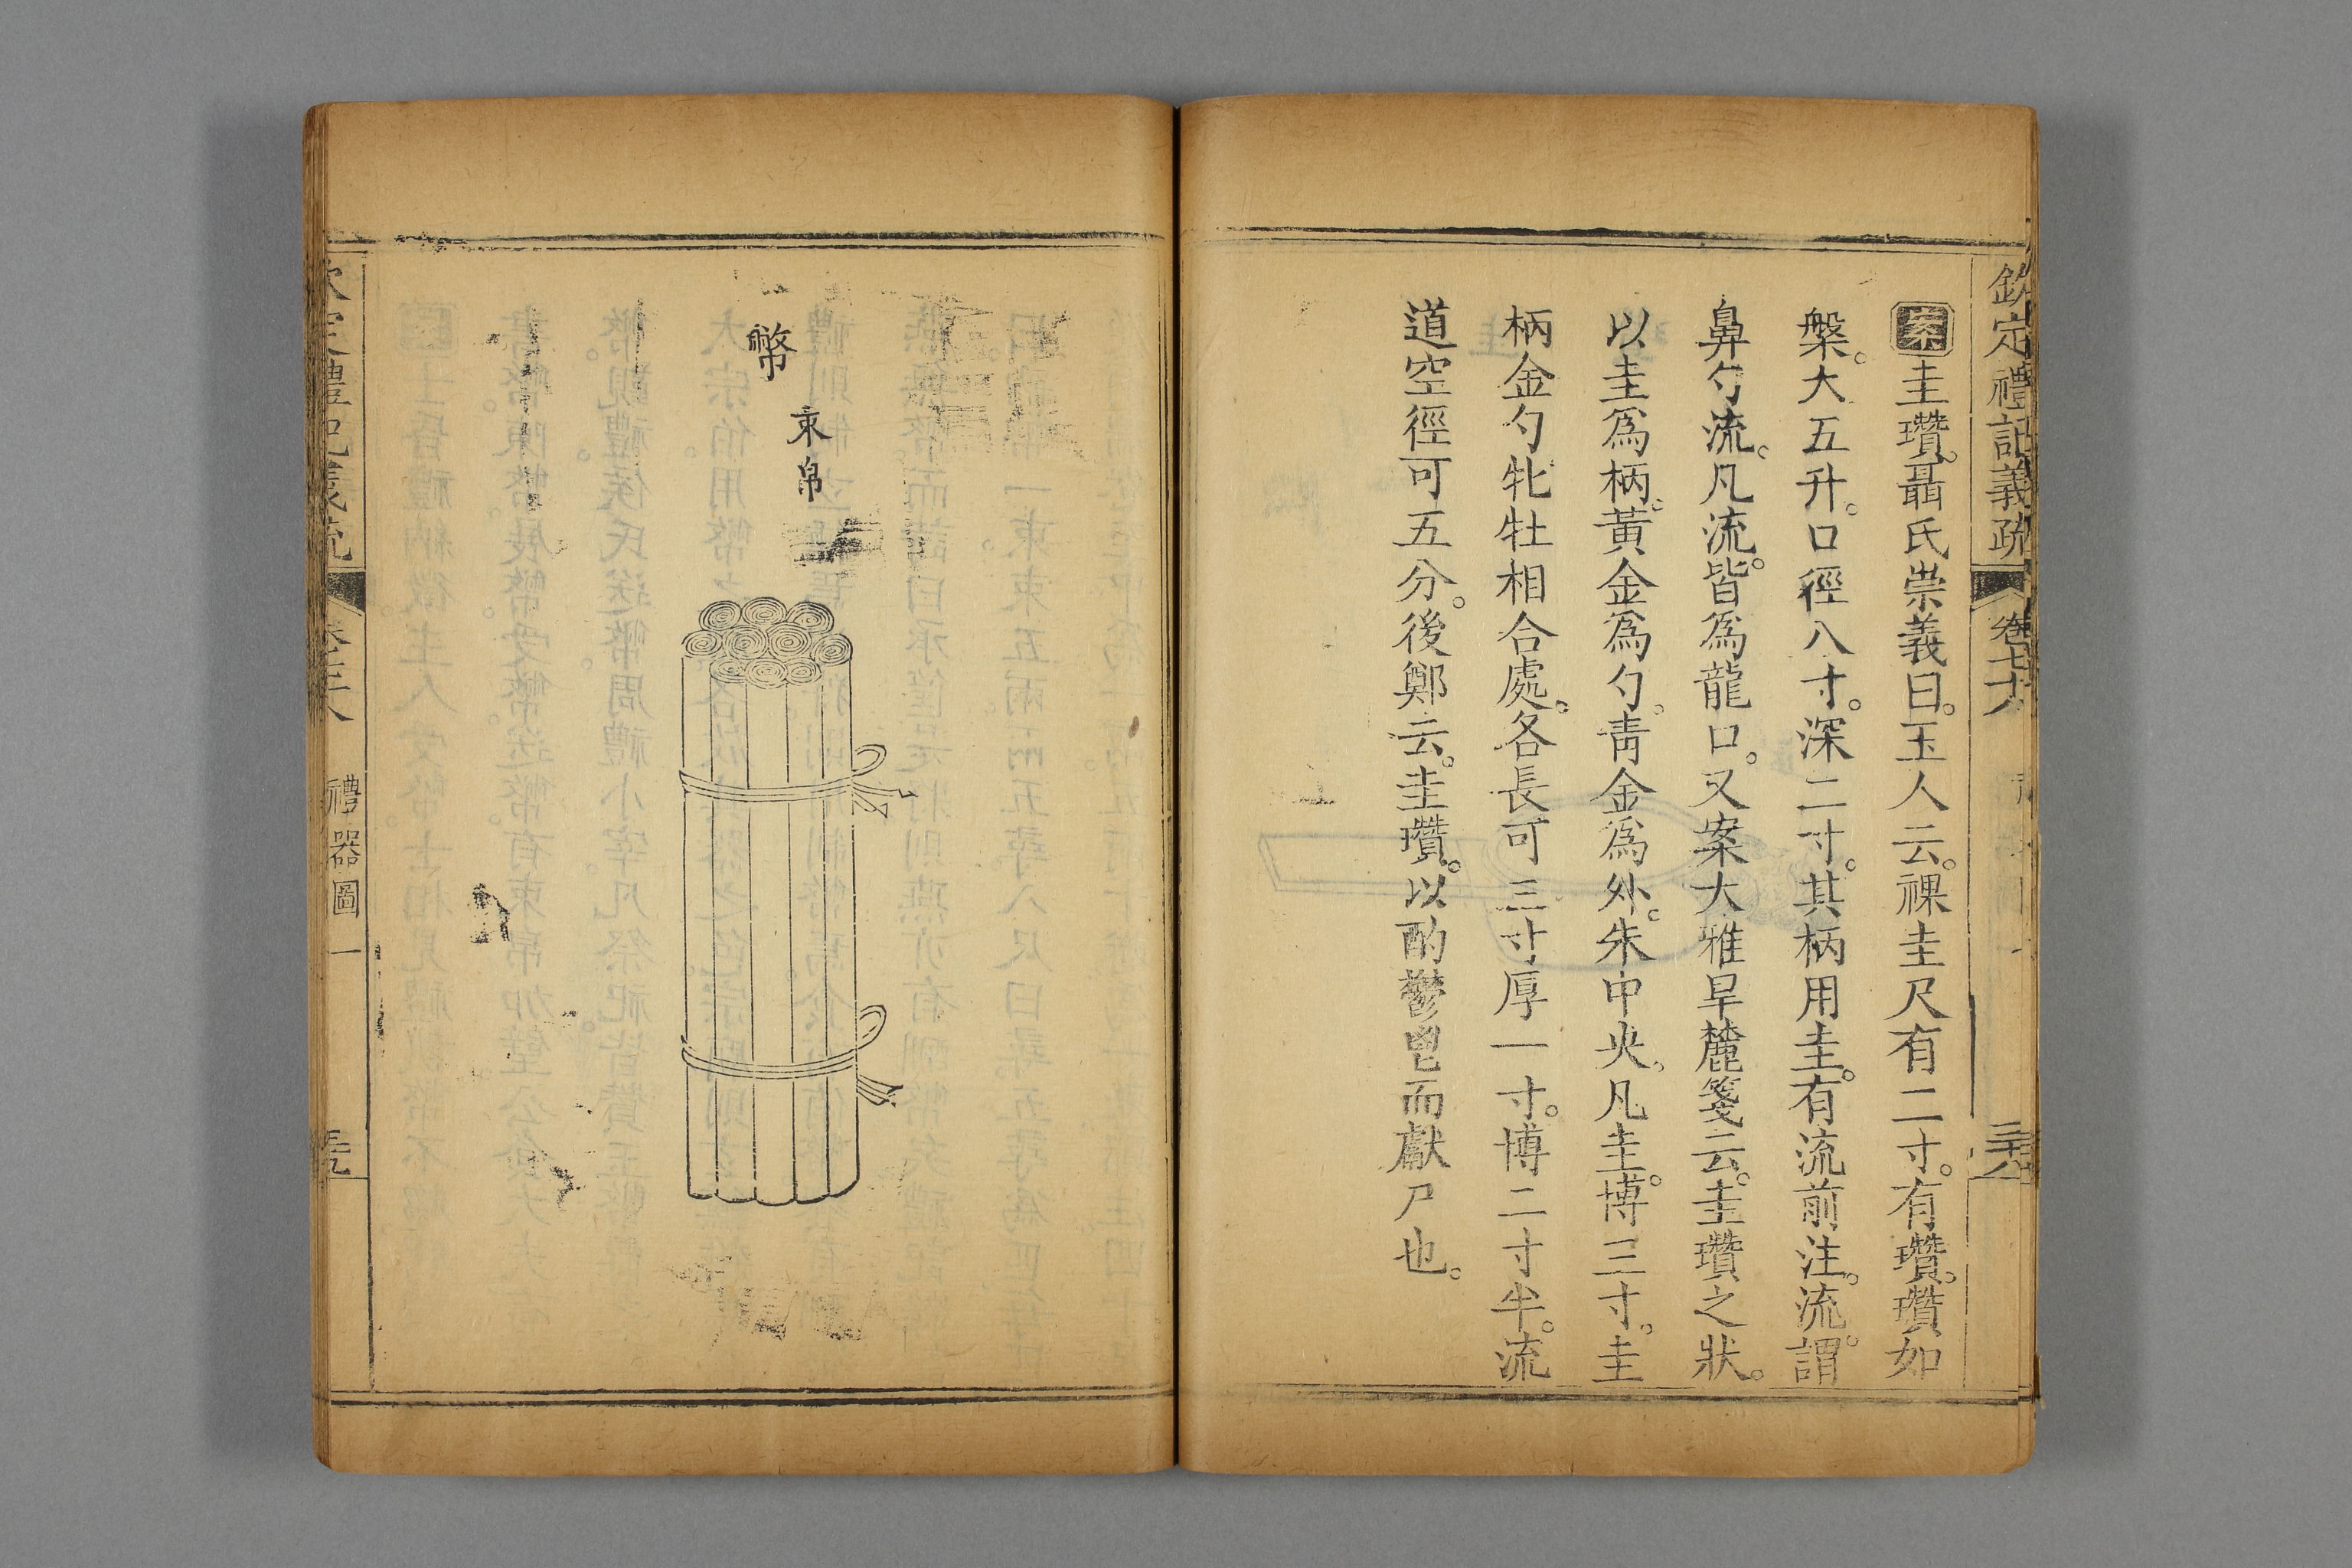 欽定禮記義疏 卷七十八
案圭瓚。聶氏崇義曰。玉人云。祼圭尺有二寸。有瓚。瓚如
槃。大五升。口徑八寸。深二寸。其柄用圭。有流前注。流。謂
鼻勺流。凡流。皆爲龍口。又案大雅旱麓箋云。圭瓚之狀。
以圭爲柄。黃金爲勺。靑金爲外。朱中央。凡圭。博三寸。圭
柄金勺。牝牡相合處。各長可三寸厚一寸。博二寸半。流
道空徑可五分。後鄭云。圭瓚。以酌鬱鬯而獻尸也。
幣
束帛
定禮記義疏
禮器圖一